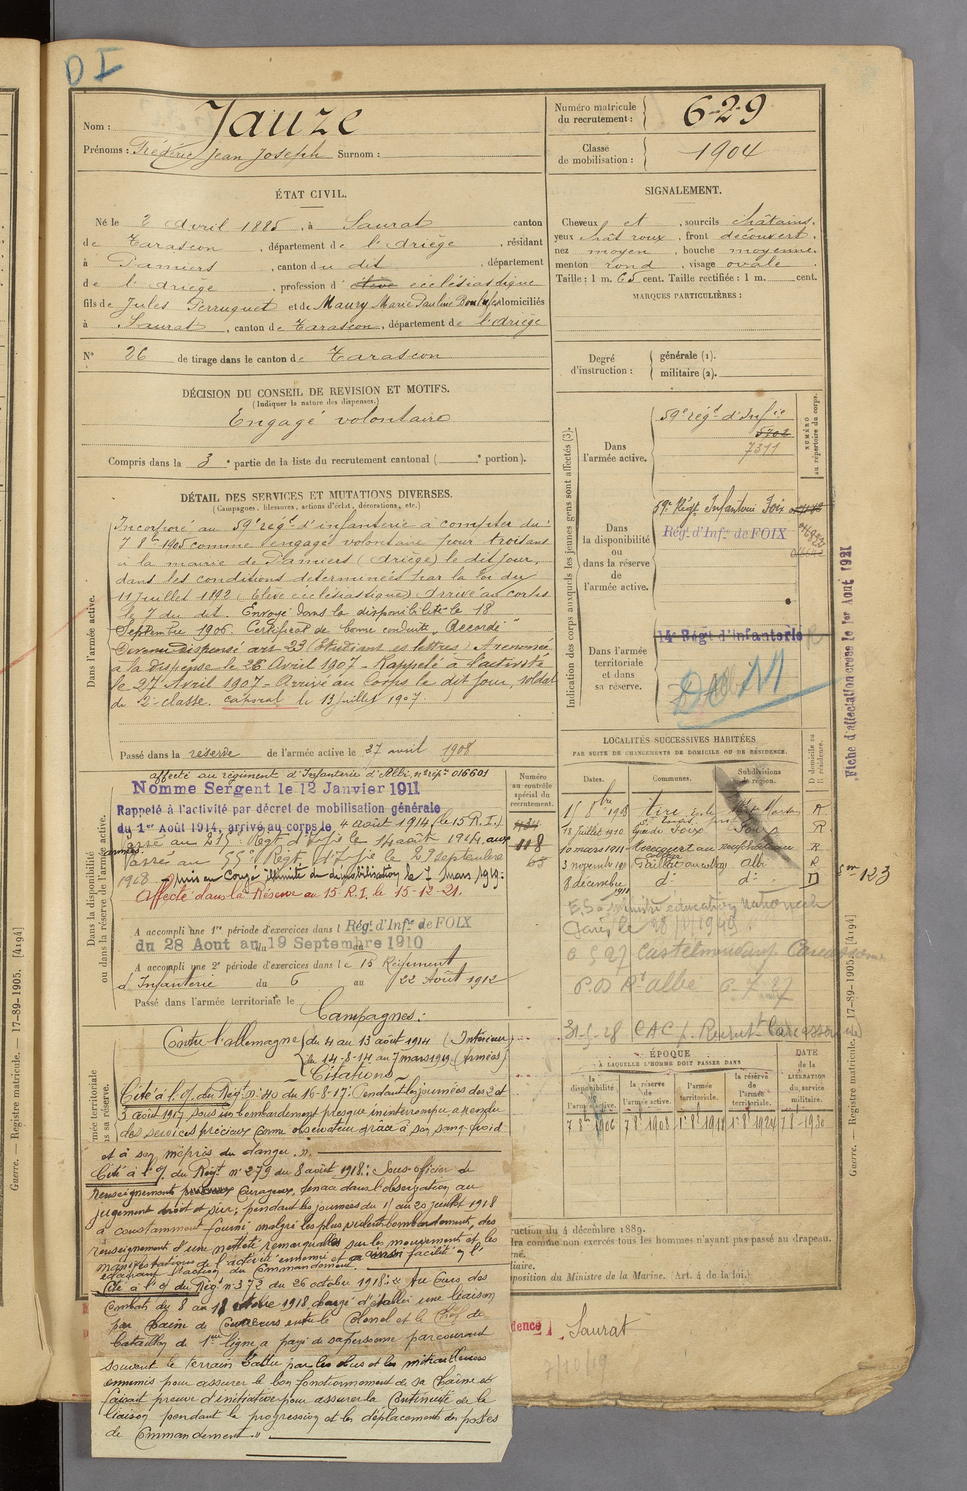 D I
Nom : Jauze
Prénoms : Frédéric Jean Joseph Surnom :
Numéro matricule du recrutement : 629
Classe de mobilisation : 1904
ÉTAT CIVIL.
Né le 2 Avril 1885, à Saurat canton
de Tarascon, département de l'Ariège, résidant
à Pamiers, canton du dit, département
de l'Ariège, profession d'élève ecclésiastique
fils de Jules Perruquet et de Maury Marie Pauline domiciliés
à Saurat, canton de Tarascon, département de l'Ariège
N° 26 de tirage dans le canton de Tarascon
SIGNALEMENT.
Cheveux et, sourcils châtains,
yeux chât roux, front découvert,
nez moyen, bouche moyenne,
menton rond, visage ovale
Taille : 1 m. 65 cent. Taille rectifiée : 1 m. cent.
MARQUES PARTICULIÈRES :
Degré d'instruction : générale (1).
militaire (2).
DÉCISION DU CONSEIL DE REVISION ET MOTIFS.
(Indiquer la nature des dispenses.)
Engagé volontaire
Compris dans la 3e partie de la liste du recrutement cantonal ( e portion).
DÉTAIL DES SERVICES ET MUTATIONS DIVERSES.
(Campagnes, blessures, actions d'éclat, décorations, etc.)
Dans l'armée active.
Incorporé au 59e régt d'infanterie à compter du
7 8bre 1905 comme engagé volontaire pour trois ans
à la mairie de Pamiers (Ariège) le dit jour,
dans les conditions déterminées par la loi du
11 juillet 1892 (Elève ecclésiastique). Arrivé au corps
le 7 du dit. Envoyé dans la disponibilité le 18
Septembre 1906. Certificat de bonne conduite "Accordé"
Devenu dispensé art 23 (Etudiant es lettres). A renoncé
à la dispense le 26 Avril 1907 - Rappelé à l'activité
le 27 Avril 1907 - Arrivé au Corps le dit jour, soldat
de 2e classe. caporal le 13 juillet 1907
Passé dans la réserve de l'armée active le 27 avril 1908
Indication des corps auxquels les jeunes gens sont affectés (3).
NUMÉRO au répertoire du corps.
Dans l'armée active.
59e régt d'Infie
5702
7311
Dans la disponibilité ou dans la réserve de l'armée active.
59e Régt Infanterie Foix
Rég. d'Infie de FOIX
Dans l'armée territoriale et dans sa réserve.
14e Régt d'Infanterie
DCM
Fiche d'affectation créée le 1er Aout 1921
Dans la disponibilité ou dans la réserve de l'armée active.
affecté au régiment d'Infanterie d'Albi, n° rép. 016601
Nommé Sergent le 12 Janvier 1911
Rappelé à l'activité par décret de mobilisation générale
du 1er Août 1914, arrivé au corps le 4 août 1914 (le 15 R.I.)
Passé au 215e Régt d'Infie le 14 août 1914 aux
armées.
Passé au 55e Régt d'Infie le 29 septembre
1918 - mis en Congé illimité de démobilisation le 7 Mars 1919.
Affecté dans la Réserve au 15 R.I. le 15-12-21.
A accompli une 1re période d'exercices dans l Rég. d'Infie de FOIX
du 28 Aout au 19 Septembre 1910
A accompli une 2e période d'exercices dans le 15 Régiment
d'Infanterie du 6 au 22 Août 1912
Passé dans l'armée territoriale le
Numéro au contrôle spécial du recrutement.
118
68
LOCALITÉS SUCCESSIVES HABITÉES
PAR SUITE DE CHANGEMENTS DE DOMICILE OU DE RÉSIDENCE.
Dates. Communes. Subdivisions de région. D domicile ou R résidence.
18 juillet 1910 Foix R
10 mars 1911 Neufchâteau R
3 novembre 1911 Gaillac Albi R
8 décembre 1911 d° d° D
5m 123
31-5-28 CAC p. Recrut Carcassonne
Campagnes :
Contre l'allemagne du 4 au 13 août 1914 (Intérieur)
du 14-8-14 au 7 mars 1919 (Armées)
Citations
Cité à l'O. du Régt n° 40 du 16-8-17. "Pendant les journées des 2 et
3 août 1917 sous un bombardement presque ininterrompu, a rendu
des services précieux comme observateur grâce à son sang-froid
et à son mépris du danger."
Cité à l'O. du Régt n° 279 du 8 août 1918 : Sous-officier de
renseignements courageux, tenace dans l'observation au
jugement droit et sûr ; pendant les journées du 15 au 20 juillet 1918
a constamment fourni malgré les plus violents bombardements, des
renseignements d'une netteté remarquable sur les mouvements et les
manifestations de l'activité ennemie et a ainsi facilité en l'
éclairant l'action du Commandement.
Cité à l'O. du Régt n° 372 du 26 octobre 1918 : "Au Cours des
Combats du 8 au 18 octobre 1918, chargé d'établir une liaison
par chaine de Coureurs entre le Colonel et le Chef de
bataillon de 1ère ligne, a payé de sa personne parcourant
souvent le terrain battu par les obus et les mitrailleuses
ennemis pour assurer le bon fonctionnement de sa Chaine et
faisant preuve d'initiative pour assurer la Continuité de la
liaison pendant la progression et les déplacements des postes
de Commandement."
ÉPOQUE
À LAQUELLE L'HOMME DOIT PASSER DANS
la disponibilité de l'armée active. la réserve de l'armée active. l'armée territoriale. la réserve de l'armée territoriale.
DATE de la LIBÉRATION du service militaire.
7 8bre 1906 7 8bre 1908 1er 8bre 1918 1er 8bre 1924 7 8bre 1930
ruction du 4 décembre 1889.
dra comme non exercés tous les hommes n'ayant pas passé au drapeau.
position du Ministre de la Marine. (Art. 4 de la loi.)
dence Saurat
Guerre. — Registre matricule. — 17-89-1905. [4194]
Guerre. — Registre matricule. — 17-89-1905. [4194]